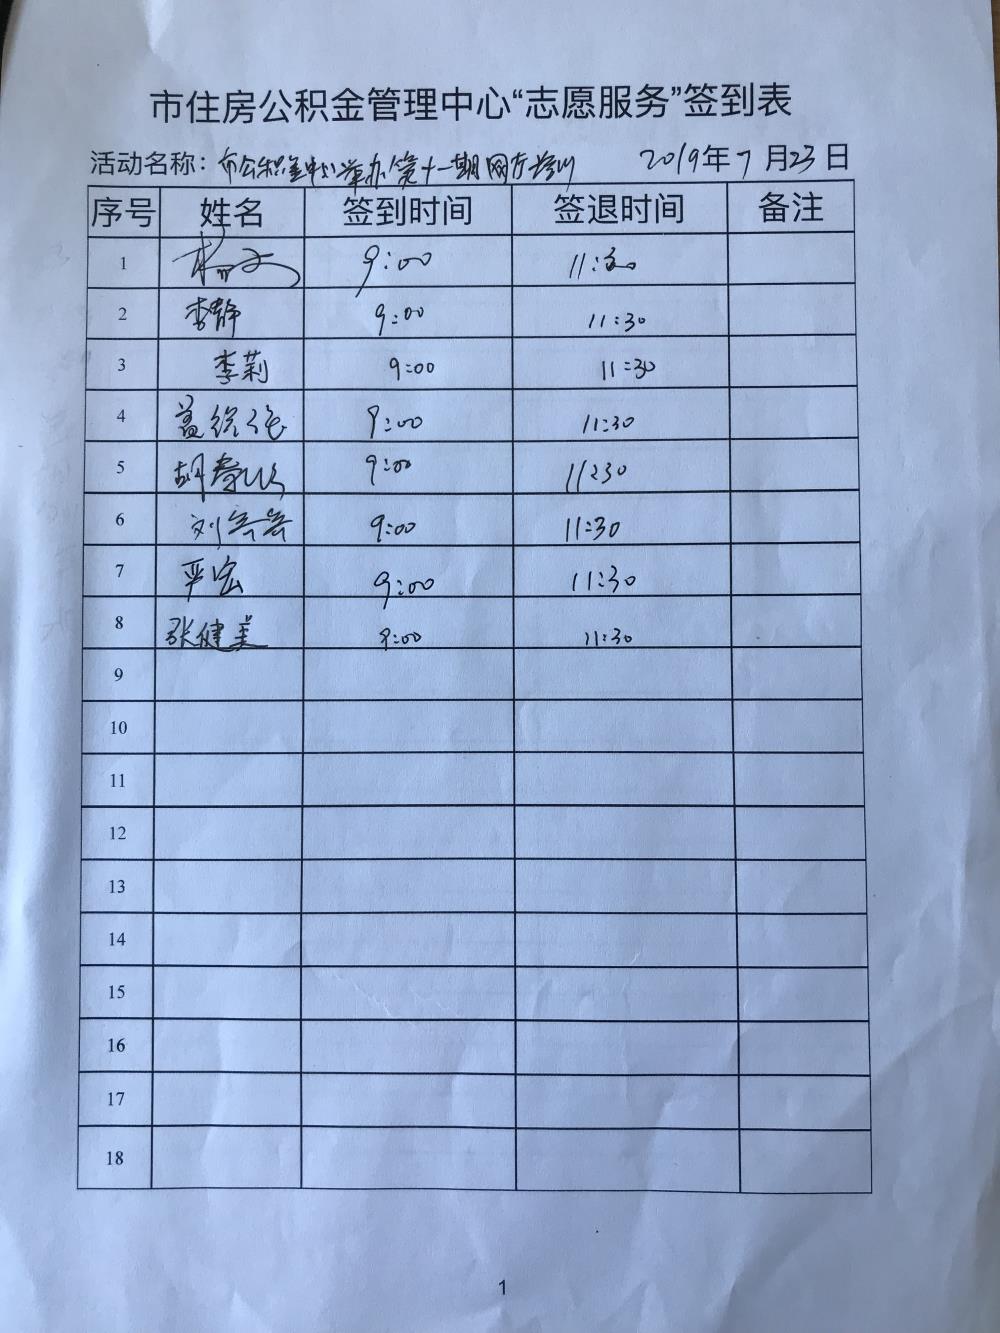 市住房公积金管理中心“志愿服务”签到表
活动名称：市公积金中心举办第十一期网厅培训 2019年7月23日
序号 姓名 签到时间 签退时间 备注
1 9:00 11:30
2 李静 9:00 11:30
3 李莉 9:00 11:30
4 9:00 11:30
5 9:00 11:30
6 刘芸芸 9:00 11:30
7 严宏 9:00 11:30
8 张健美 9:00 11:30
9
10
11
12
13
14
15
16
17
18
1